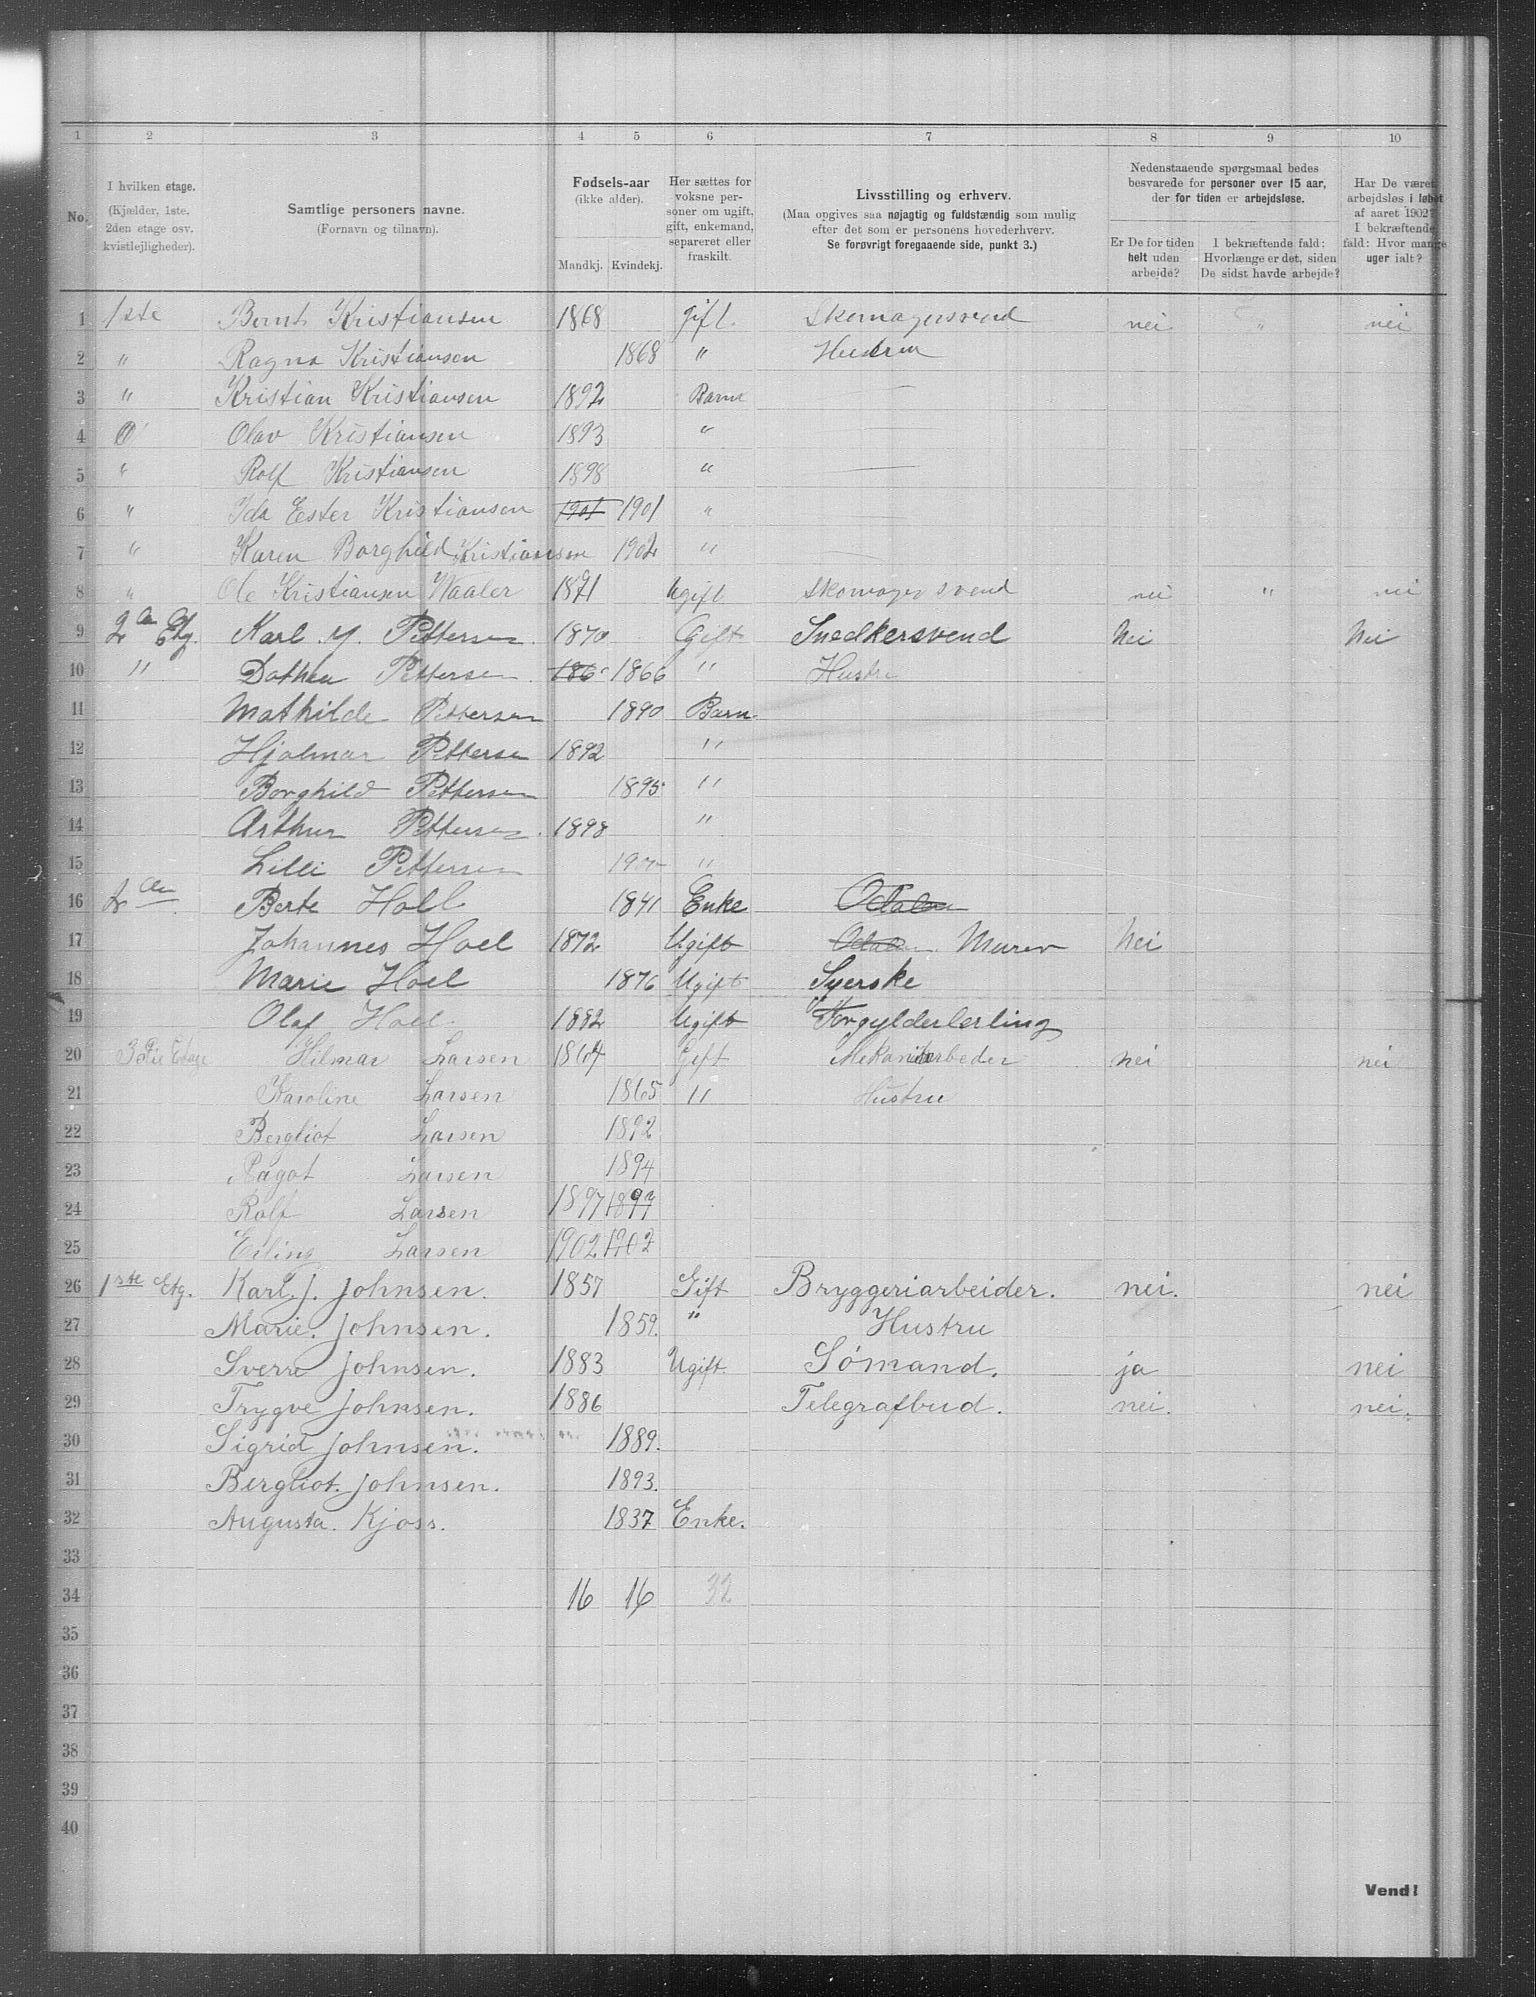 1 2 3 4 5 6 7 8 9 10
No. I hvilken etage. (Kjælder, 1ste. 2den etage osv. kvistlejligheder). Samtlige personers navne. (Fornavn og tilnavn). Fødsels-aar (ikke alder). Mandkj. Kvindekj. Her sættes for voksne personer om ugift, gift, enkemand, separeret eller fraskilt. Livsstilling og erhverv. (Maa opgives saa nøjagtig og fuldstændig som mulig efter det som er personens hovederhverv. Se forøvrigt foregaaende side, punkt 3.) Nedenstaaende spørgsmaal bedes besvarede for personer over 15 aar, der for tiden er arbejdsløse. Er De for tiden helt uden arbejde? I bekræftende fald: Hvorlænge er det, siden De sidst havde arbejde? Har De været arbejdsløs i løbet af aaret 1902? I bekræftende fald: Hvor mange uger ialt?
1 1ste Bernt Kristiansen 1868 gift. Skomagersvend nei " nei
2 " Ragna Kristiansen 1868 " Hustru
3 " Kristian Kristiansen 1892 Barn
4 Olav Kristiansen 1893 "
5 " Rolf Kristiansen 1898 "
6 " Ida Ester Kristiansen 1901 1901 "
7 " Karen Borghild Kristiansen 1902 "
8 " Ole Kristiansen Waaler 1871 Ugift Skomagersvend nei " nei
9 2en Etg. Karl Pettersen 1870 Gift Snedkersvend Nei Nei
10 " Dothea Pettersen 186 1866 " Hustru
11 Mathilde Pettersen 1890 Barn
12 Hjalmar Pettersen 1892 "
13 Borghild Pettersen 1895 "
14 Arthur Pettersen 1898 "
15 Lilli Pettersen 1900 "
16 2en Berte Holl 1841 Enke Odalen
17 Johannes Hoel 1872 Ugift Odalen Murer Nei
18 Marie Hoel 1876 Ugift Syerske
19 Olaf Hoel 1882 Ugift Forgylderlerling
20 3die Etage Hilmar Larsen 1864 Gift Mekanikarbeder nei nei
21 Karoline Larsen 1865 " Hustru
22 Bergliot Larsen 1892
23 Aagot Larsen 1894
24 Rolf Larsen 1897 1897
25 Erling Larsen 1902 1902
26 1ste Etg. Karl. J. Johnsen. 1857 Gift Bryggeriarbeider. nei. nei
27 Marie. Johnsen. 1859. " Hustru
28 Sverre Johnsen. 1883 Ugift. Sömand. ja nei
29 Trygve Johnsen. 1886 Telegrafbud. nei. nei.
30 Sigrid Johnsen. 1889.
31 Bergliot. Johnsen. 1893.
32 Augusta. Kjoss. 1837 Enke.
33
34 16 16 32
35
36
37
38
39
40
Vend!